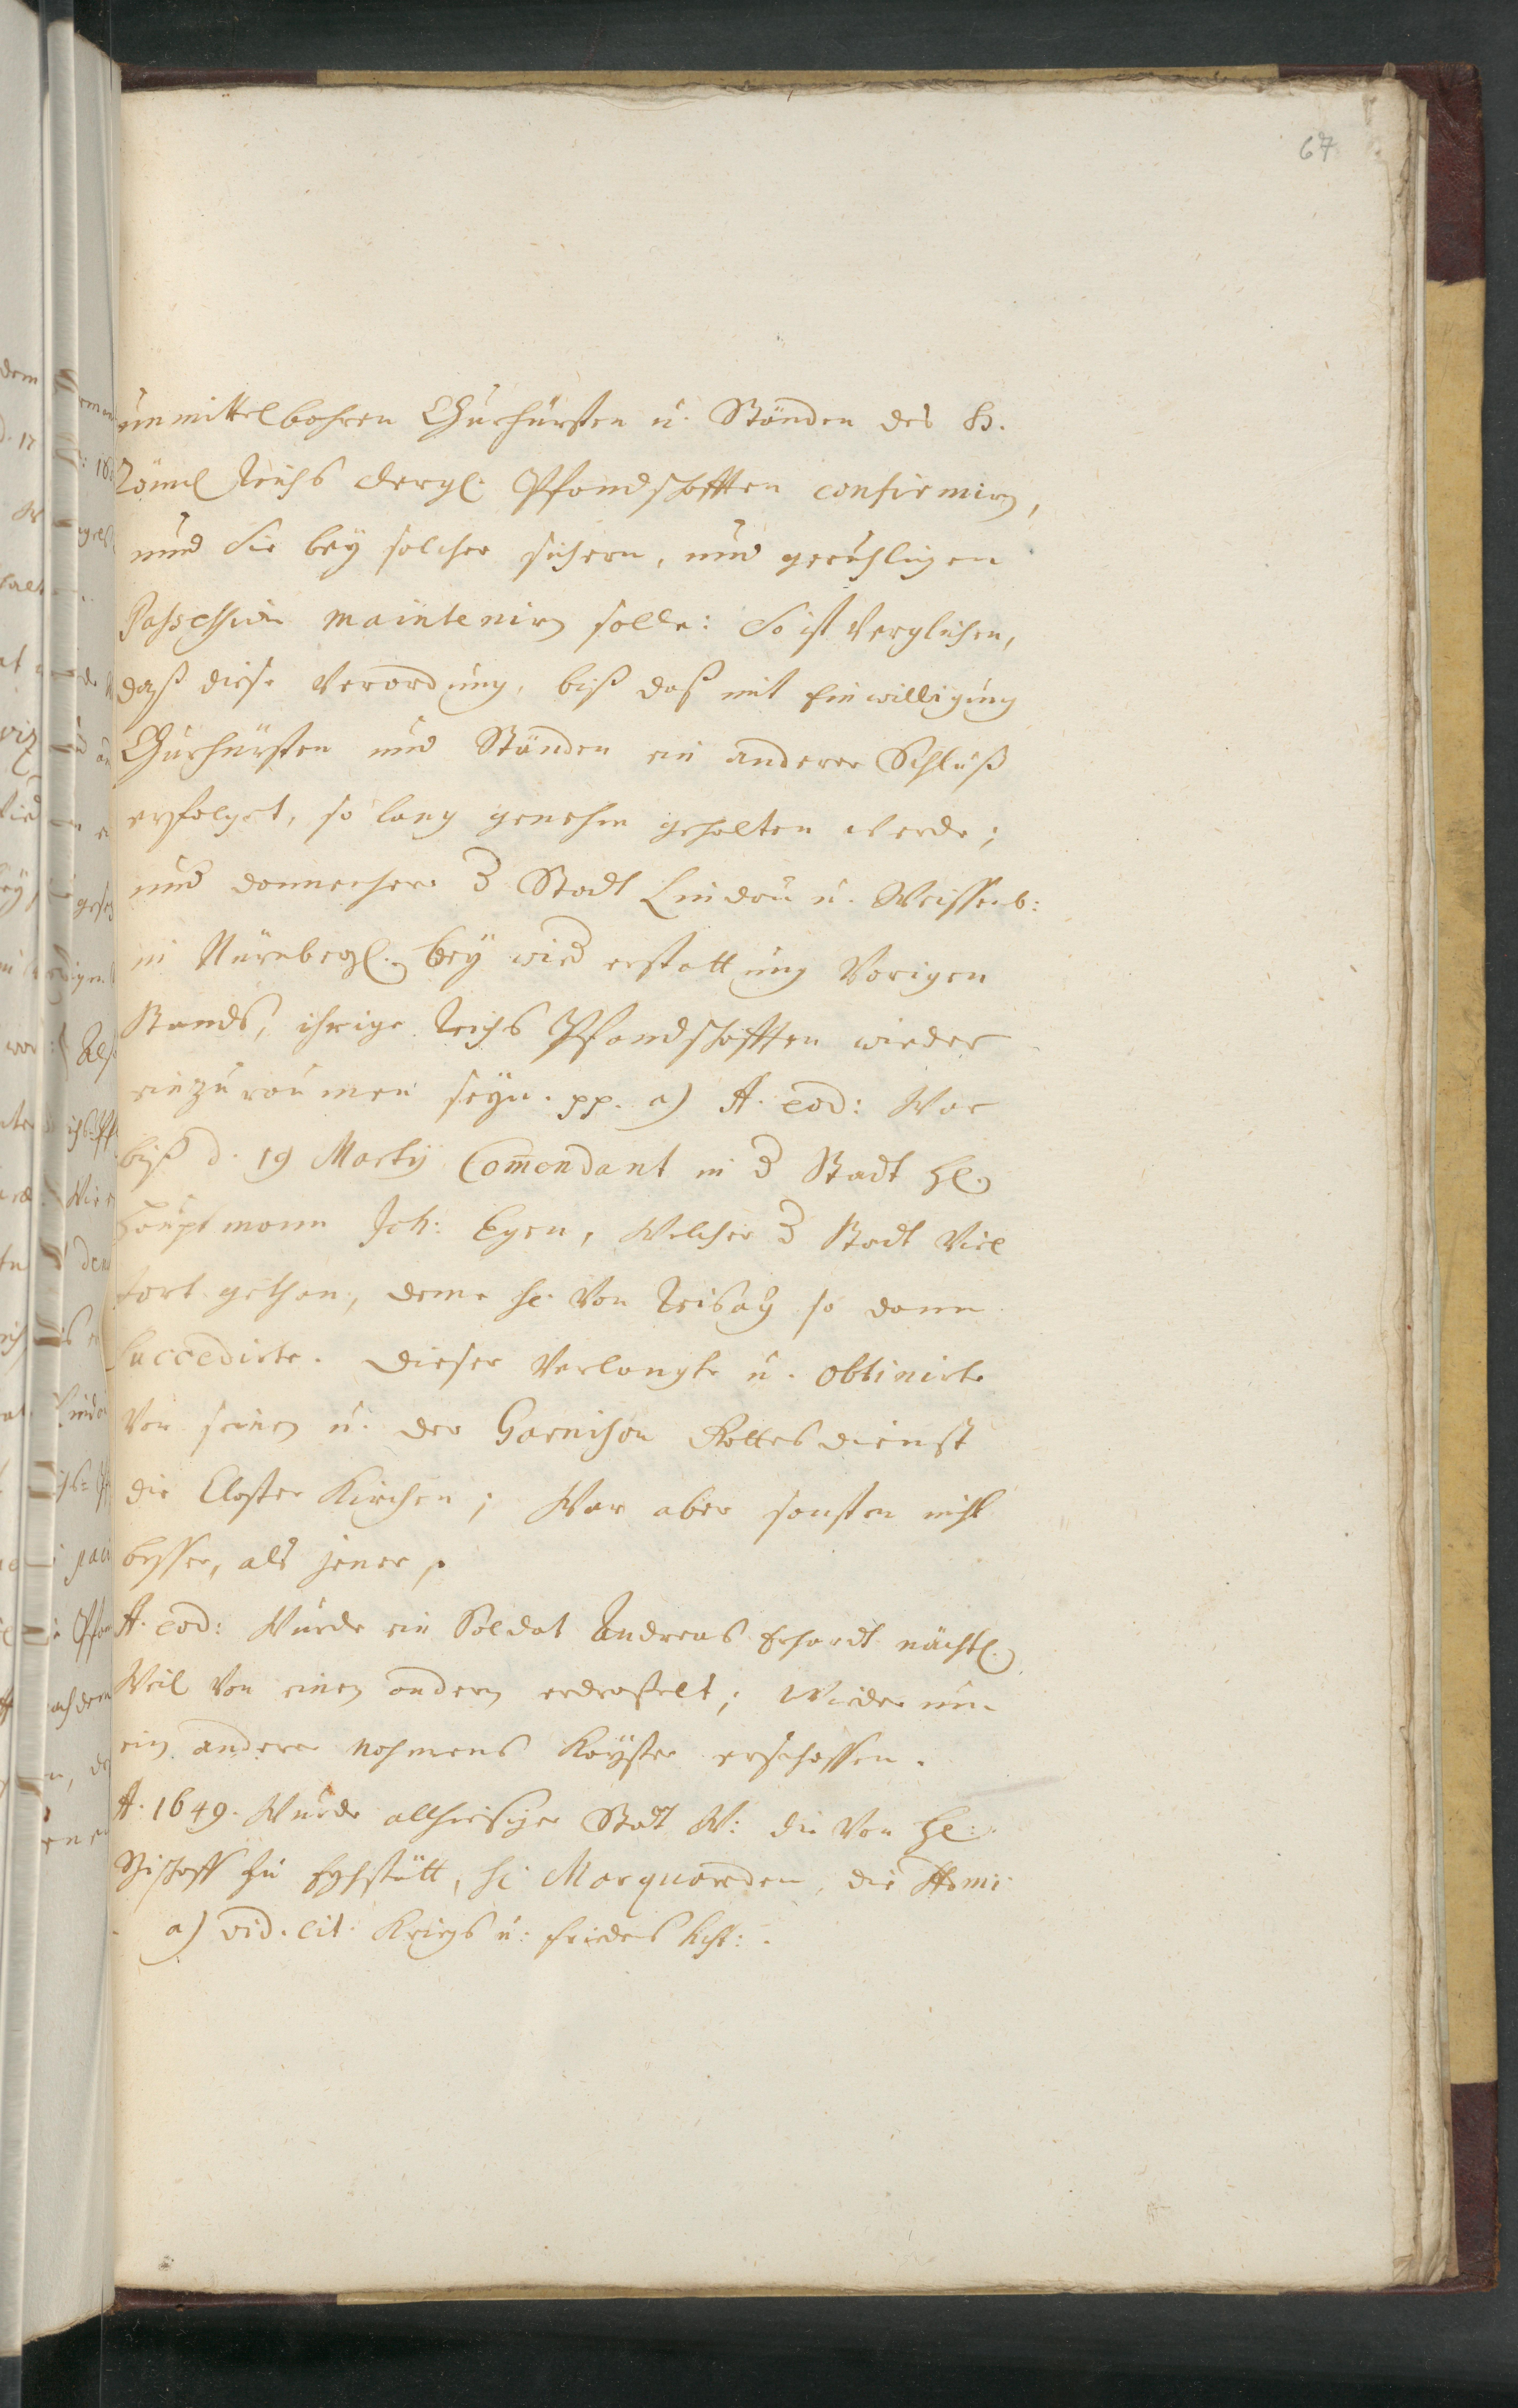 67
unmittelbahren Churfürsten u. Ständen des H.
Römel Reichs dergl. Pfandschafften confirmirn,
und Sie bey solcher sichern, und geruhligen
Possession maintenirn solle: So ist Verglichen,
daß diese Verordnung, biß daß mit Einwilligung
Churfürsten und Ständen ein anderer Schluß
erfolget, so lang genehm gehalten werde;
und dannenhero d Stadt Lindau u. Weissenb:
in bey wied erstattung Vorigen
Stands, ihrige Reichs Pfandschafften wieder
einzuraumen seyn. pp. a) A. eod: War
biß d. 19 Martij Com̄endant in d Stadt H.
Hauptmann Joh: Egen, Welcher d Stadt Viel
tort gethan, deme H. Von so dann
succedirte. Dieser Verlangte u. obtinirte
Vor seinen u. der Garnison Gottesdienst
die Closter Kirchen; War aber sonsten nicht
besser, als jener.
A. eod: Wurde ein Soldat Andreas Erhardt nächtl.
Weil Von einen andern erdrosselt; Wieder um
ein anderer Nahmens Kayser erschossen.
A. 1649. Wurde allhiesiger Statt W: die Von H:
Bischoff zu Eychstätt, H. Marquarden, die
a) vid. cit. Kriegs u: Friedens